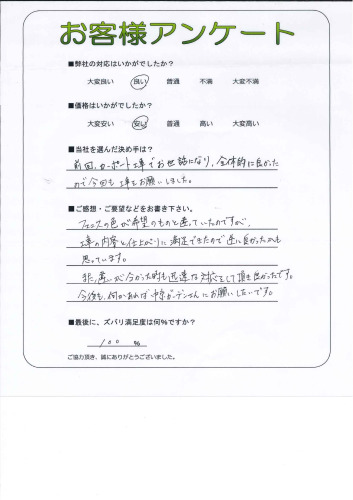 お客様アンケート
■弊社の対応はいかがでしたか？
大変良い 良い 普通 不満 大変不満
■価格はいかがでしたか？
大変安い 安い 普通 高い 大変高い
■当社を選んだ決め手は？
前回、カーポート工事でお世話になり、全体的に良かった
ので今回も工事をお願いしました。
■ご感想・ご要望などをお書き下さい。
フェンスの色が希望のものと違っていたのですが、
工事の内容と仕上がりに満足できたので逆に良かったかも
思っています。
迅速な対応をして頂き良かったです。
今後も、何かあればガーデンさんにお願いしたいです。
■最後に、ズバリ満足度は何％ですか？
100 ％
ご協力頂き、誠にありがとうございました。